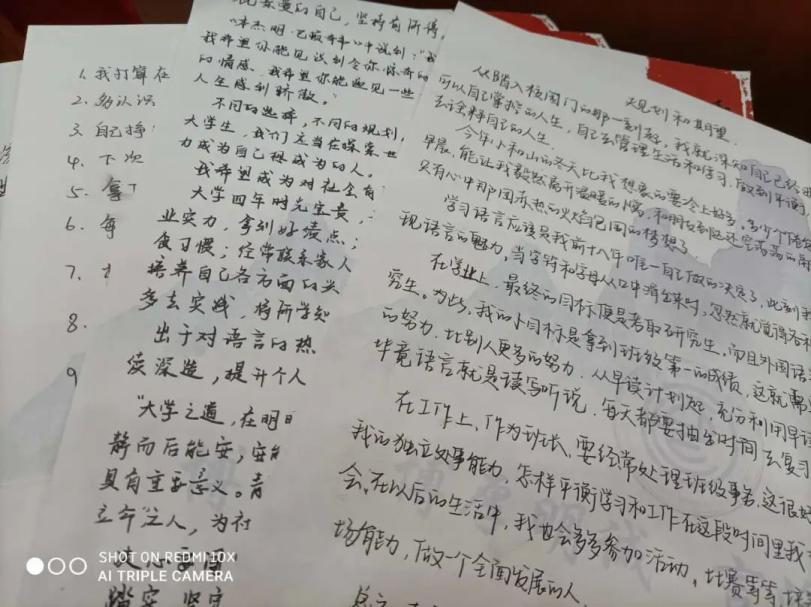 1. 我打算在
2. 多认识
3. 自己挣
4. 下次
5. 拿下
6. 每
7.
8.
9
想要的自己,坚持有所得,
我希望你能见识到令你惊奇的
的情感,我希望你能遇见一些
人生感到骄傲。"
不同的选择,不同的规划,
大学生,我们应当在探索
力成为自己想成为的人。
我希望成为对社会有
大学四年时光宝贵,
业实力,拿到好绩点;
食习惯;经常联系家人
培养自己各方面的兴
多去实践,将所学知
出于对语言的热
续深造,提升个人
"大学之道,在明
静而后能安,安
具有重要意义。青
立命"之人,为社
踏实、坚定
大规划和期望
从踏入校园门的那一刻起,我就深知自己已经
可以自己掌控的人生,自己去管理生活和学习,做到平衡
去诠释自己的人生。
今年小和山的冬天比我想象的要冷上好多。多少个
早晨,能让我毅然离开温暖的小窝,和朋友
只有心中那团赤热的火焰包围的梦想了
学习语言应该是我前十八年唯一自己做的决定了,此刻我
现语言的魅力,当字符和字母从口中消
在学业上,最终的目标便是考取研究生,而且外国语
究生。为此,我的小目标是拿到班级第一的成绩,这就需
的努力,比别人更多的努力。从早读计划起,充分利用早读
毕竟语言就是读写听说。每天都要抽出时间去复习
在工作上,作为班长,要经常处理班级事务,这很好
我的独立处事能力,怎样平衡学习和工作在这段时间里我
会。在以后的生活中,我也会多多参加活动、比赛等等,培
场能力,做一个全面发展的人。
SHOT ON REDMI 10X
AI TRIPLE CAMERA